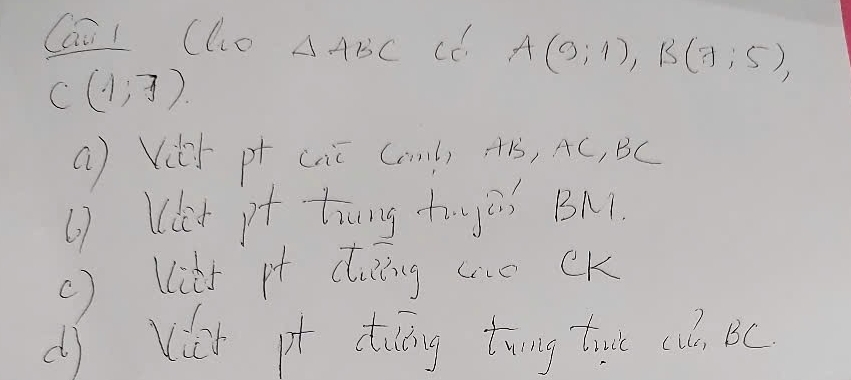 Câu 1 Cho △ABC có A(9;1), B(7;5),
C(1;7).
a) Viết pt các cạnh AB, AC, BC
b) Viết pt trung tuyến BM.
c) Viết pt đường cao CK
d) Viết pt đường trung trực của BC.